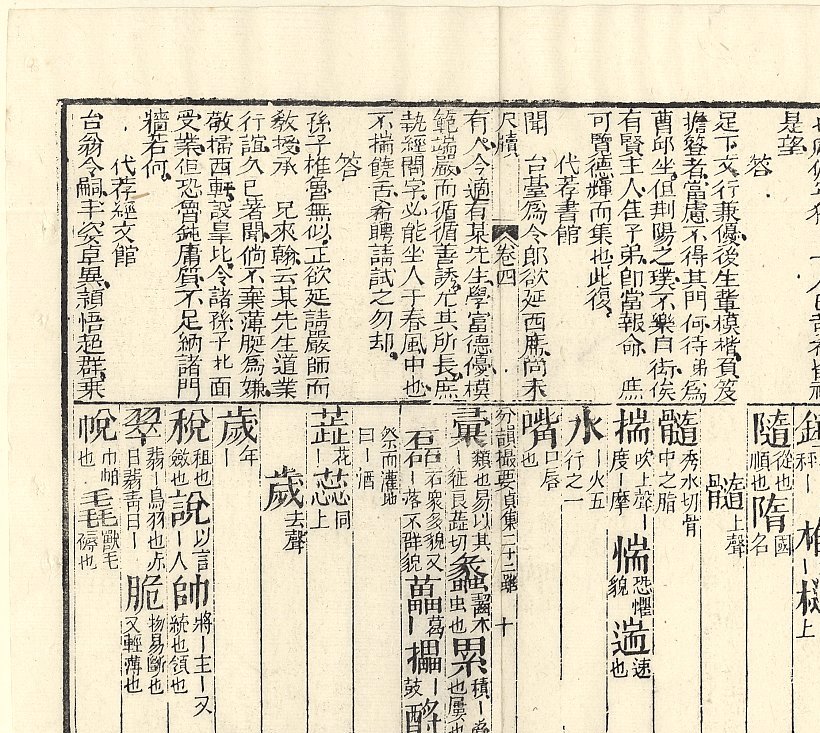 是望
答
足下文行兼優後生輩模楷負笈
擔簦者當慮不得其門何待弟為
曹邱坐但荆陽之璞不樂自衒俟
有賢主人佳子弟即當報命庶
可覽德輝而集也此復
代荐書館
聞台臺為令郎欲延西席尚未
尺牘
卷四
有人今適有某先生學富德優模
範端嚴而循循善誘尤其所長庶
執經問字必能坐人于春風中也
不揣饒舌希聘請試之勿却
答
孫子椎魯無似正欲延請嚴師而
教授承兄來翰云某先生道業
行誼久已著聞倘不棄薄脡為嫌
敬掃西軒設皐比令諸孫子北面
受業但恐魯鈍庸質不足納諸門
牆若何
代荐經文館
台翁令嗣丰姿卓異穎悟超群乘
隨從也順也隋國名
髓上聲
髓秀水切骨中之脂
揣吹上聲度摩惴恐懼貌遄速也
水火五行之一
嘴口唇也
分韻撮要貞集二十二雖
十
彙類也易以其征艮蕋切蠡齧木虫也累積屢也
磊石衆多貌又落不群貌藟葛攂鼓酹
祭而灌地曰酒
蕋花蕊同上
歲去聲
歲年
稅租也斂也說以言人帥將主又統也領也
翠翡鳥羽也亦日翡青日脆物易斷也又輕薄也
帨巾帕也毳獸毛磚也